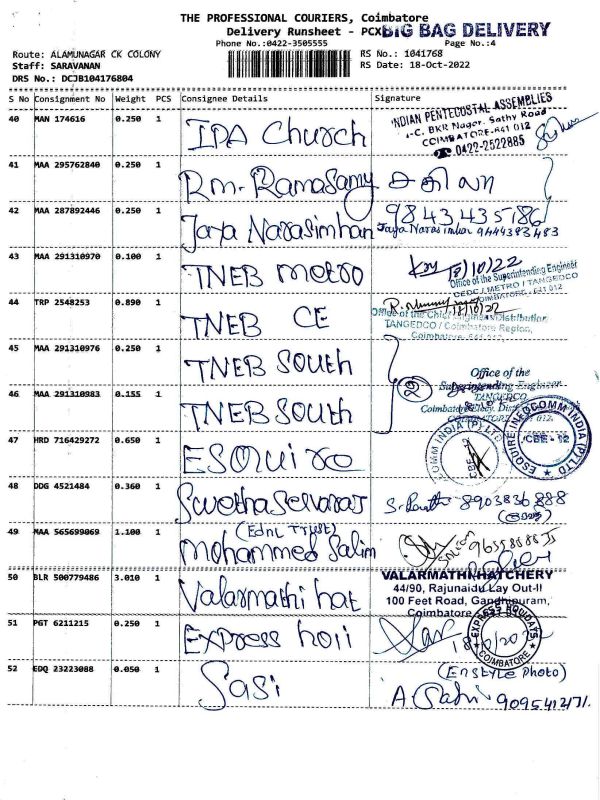 THE PROFESSIONAL COURIERS, Coimbatore
Delivery Runsheet - PCX BIG BAG DELIVERY
Phone No.:0422-3505555 Page No.:4
Route: ALAMUNAGAR CK COLONY RS No.: 1041768
Staff: SARAVANAN RS Date: 18-Oct-2022
DRS No.: DCJB104176804
S No Consignment No Weight PCS Consignee Details Signature
40 MAN 174616 0.250 1 IDA Church
INDIAN PENTECOSTAL ASSEMBLIES
1-C, BKR Nagar, Sathy Road
COIMBATORE-641 012
0422-2522885
41 MAA 295762840 0.250 1 Rm. Ramasamy
42 MAA 287892446 0.250 1 Jaya Narasimhan
9843435186
Jaya Narasimhan 9444383483
43 MAA 291310970 0.100 1 TNEB Metro
18/10/22
Office of the Superintending Engineer
CEDC / METRO / TANGEDCO
COIMBATORE - 641 012
44 TRP 2548253 0.890 1 TNEB CE
18/10/22
Office of the Chief Engineer/Distribution
TANGEDCO / Coimbatore Region,
Coimbatore - 641 012
45 MAA 291310976 0.250 1 TNEB South
46 MAA 291310983 0.155 1 TNEB South
Office of the
Superintending Engineer
TANGEDCO
47 HRD 716429272 0.650 1 ESQUIRE
ESQUIRE INFOCOMM INDIA (P) LTD
CBE - 12
48 DDG 4521484 0.360 1 Swetha Selvaraj
8903836888
49 MAA 565699069 1.100 1 (Ednl Trust)
Mohammed Salim
50 BLR 500779486 3.010 1 Valarmathi hat
VALARMATHI HATCHERY
44/90, Rajunaidu Lay Out-II
100 Feet Road, Gandhipuram,
Coimbatore
51 PGT 6211215 0.250 1 Express holi
EXPRESS HOLIDAYS
COIMBATORE
52 EDQ 23223088 0.050 1 Sasi
(Enstyle Photo)
9095412171.